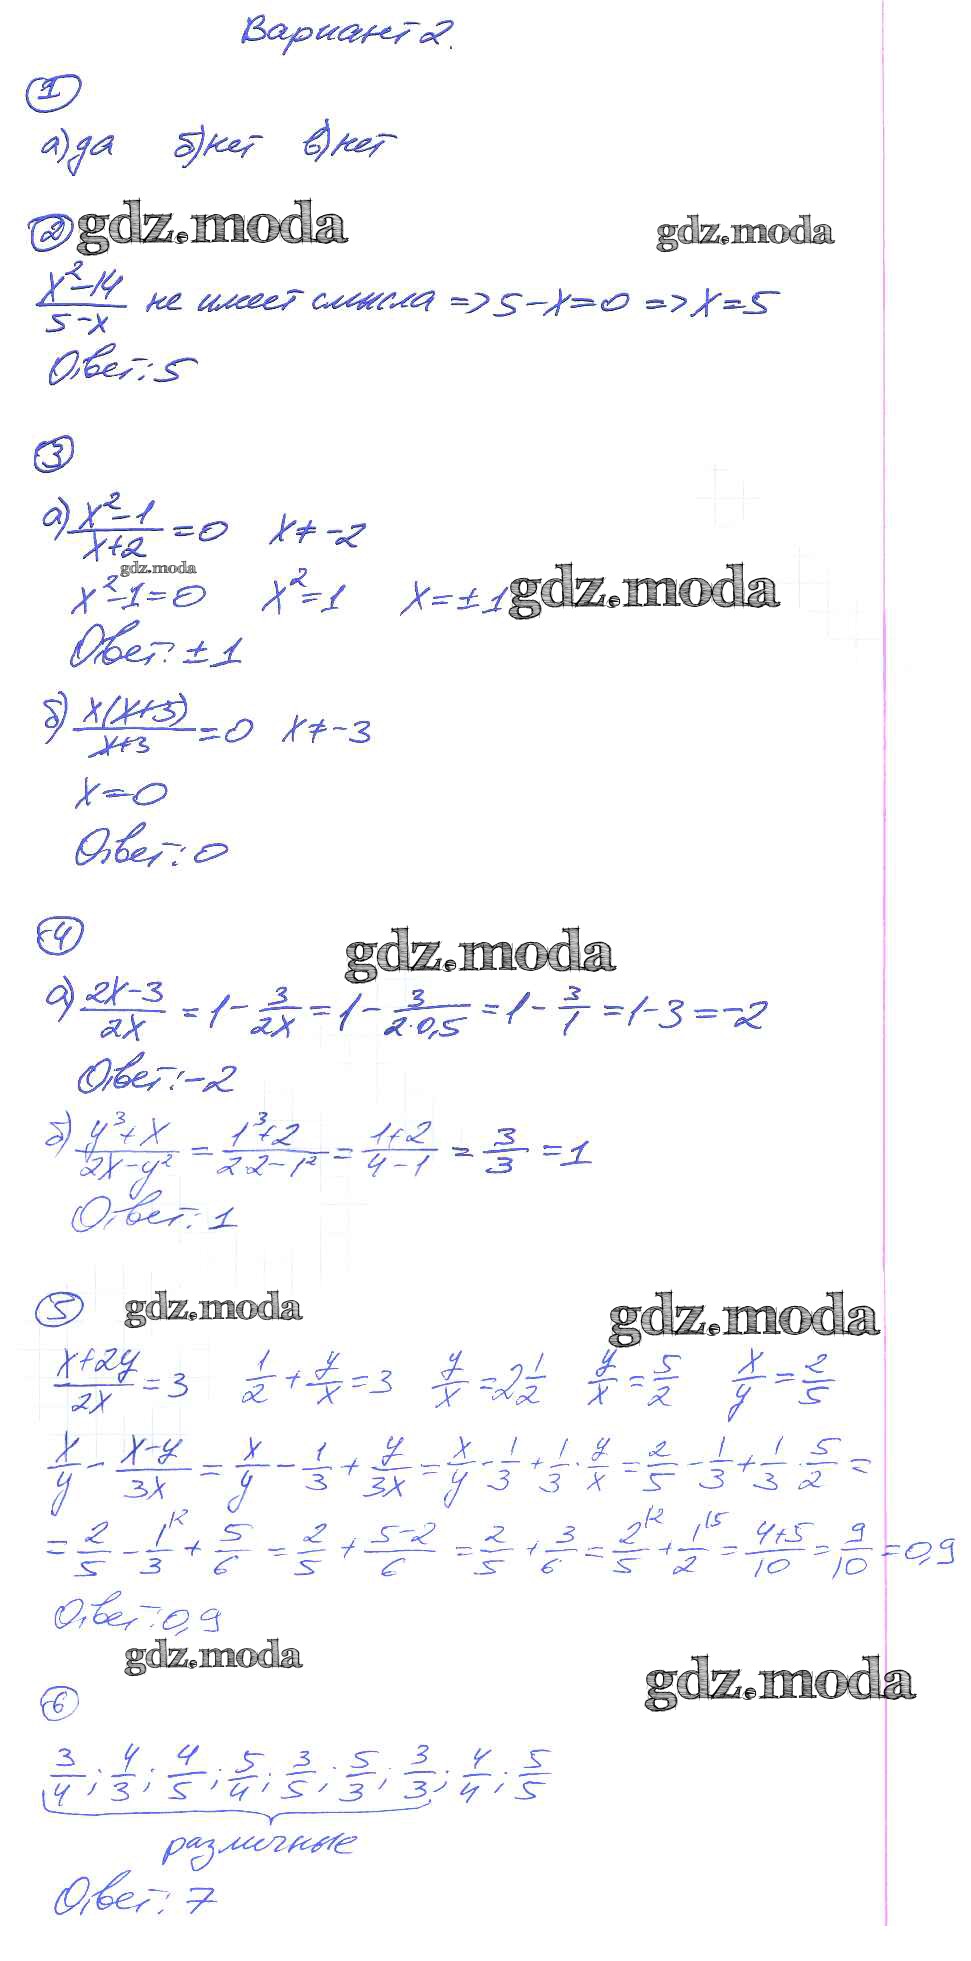 Вариант 2.
1
а) да б) нет в) нет
2 gdz.moda gdz.moda
(x²-14)/(5-x) не имеет смысла => 5-x=0 => x=5
Ответ: 5
3
а) (x²-1)/(x+2) = 0 x≠-2
gdz.moda
x²-1=0 x²=1 x=±1 gdz.moda
Ответ: ±1
б) x(x+3)/(x+3) = 0 x≠-3
x=0
Ответ: 0
4 gdz.moda
а) (2x-3)/2x = 1 - 3/2x = 1 - 3/(2·0,5) = 1 - 3/1 = 1-3 = -2
Ответ: -2
б) (y³+x)/(2x-y²) = (1³+2)/(2·2-1²) = (1+2)/(4-1) = 3/3 = 1
Ответ: 1
5 gdz.moda gdz.moda
(x+2y)/2x = 3 1/2 + y/x = 3 y/x = 2 1/2 y/x = 5/2 x/y = 2/5
x/y - (x-y)/3x = x/y - 1/3 + y/3x = x/y - 1/3 + 1/3 · y/x = 2/5 - 1/3 + 1/3 · 5/2 =
= 2/5 - 1/3 ^(2 + 5/6 = 2/5 + (5-2)/6 = 2/5 + 3/6 = 2/5 ^(2 + 1/2 ^(5 = (4+5)/10 = 9/10 = 0,9
Ответ: 0,9
gdz.moda gdz.moda
6
3/4; 4/3; 4/5; 5/4; 3/5; 5/3; 3/3; 4/4; 5/5
различные
Ответ: 7